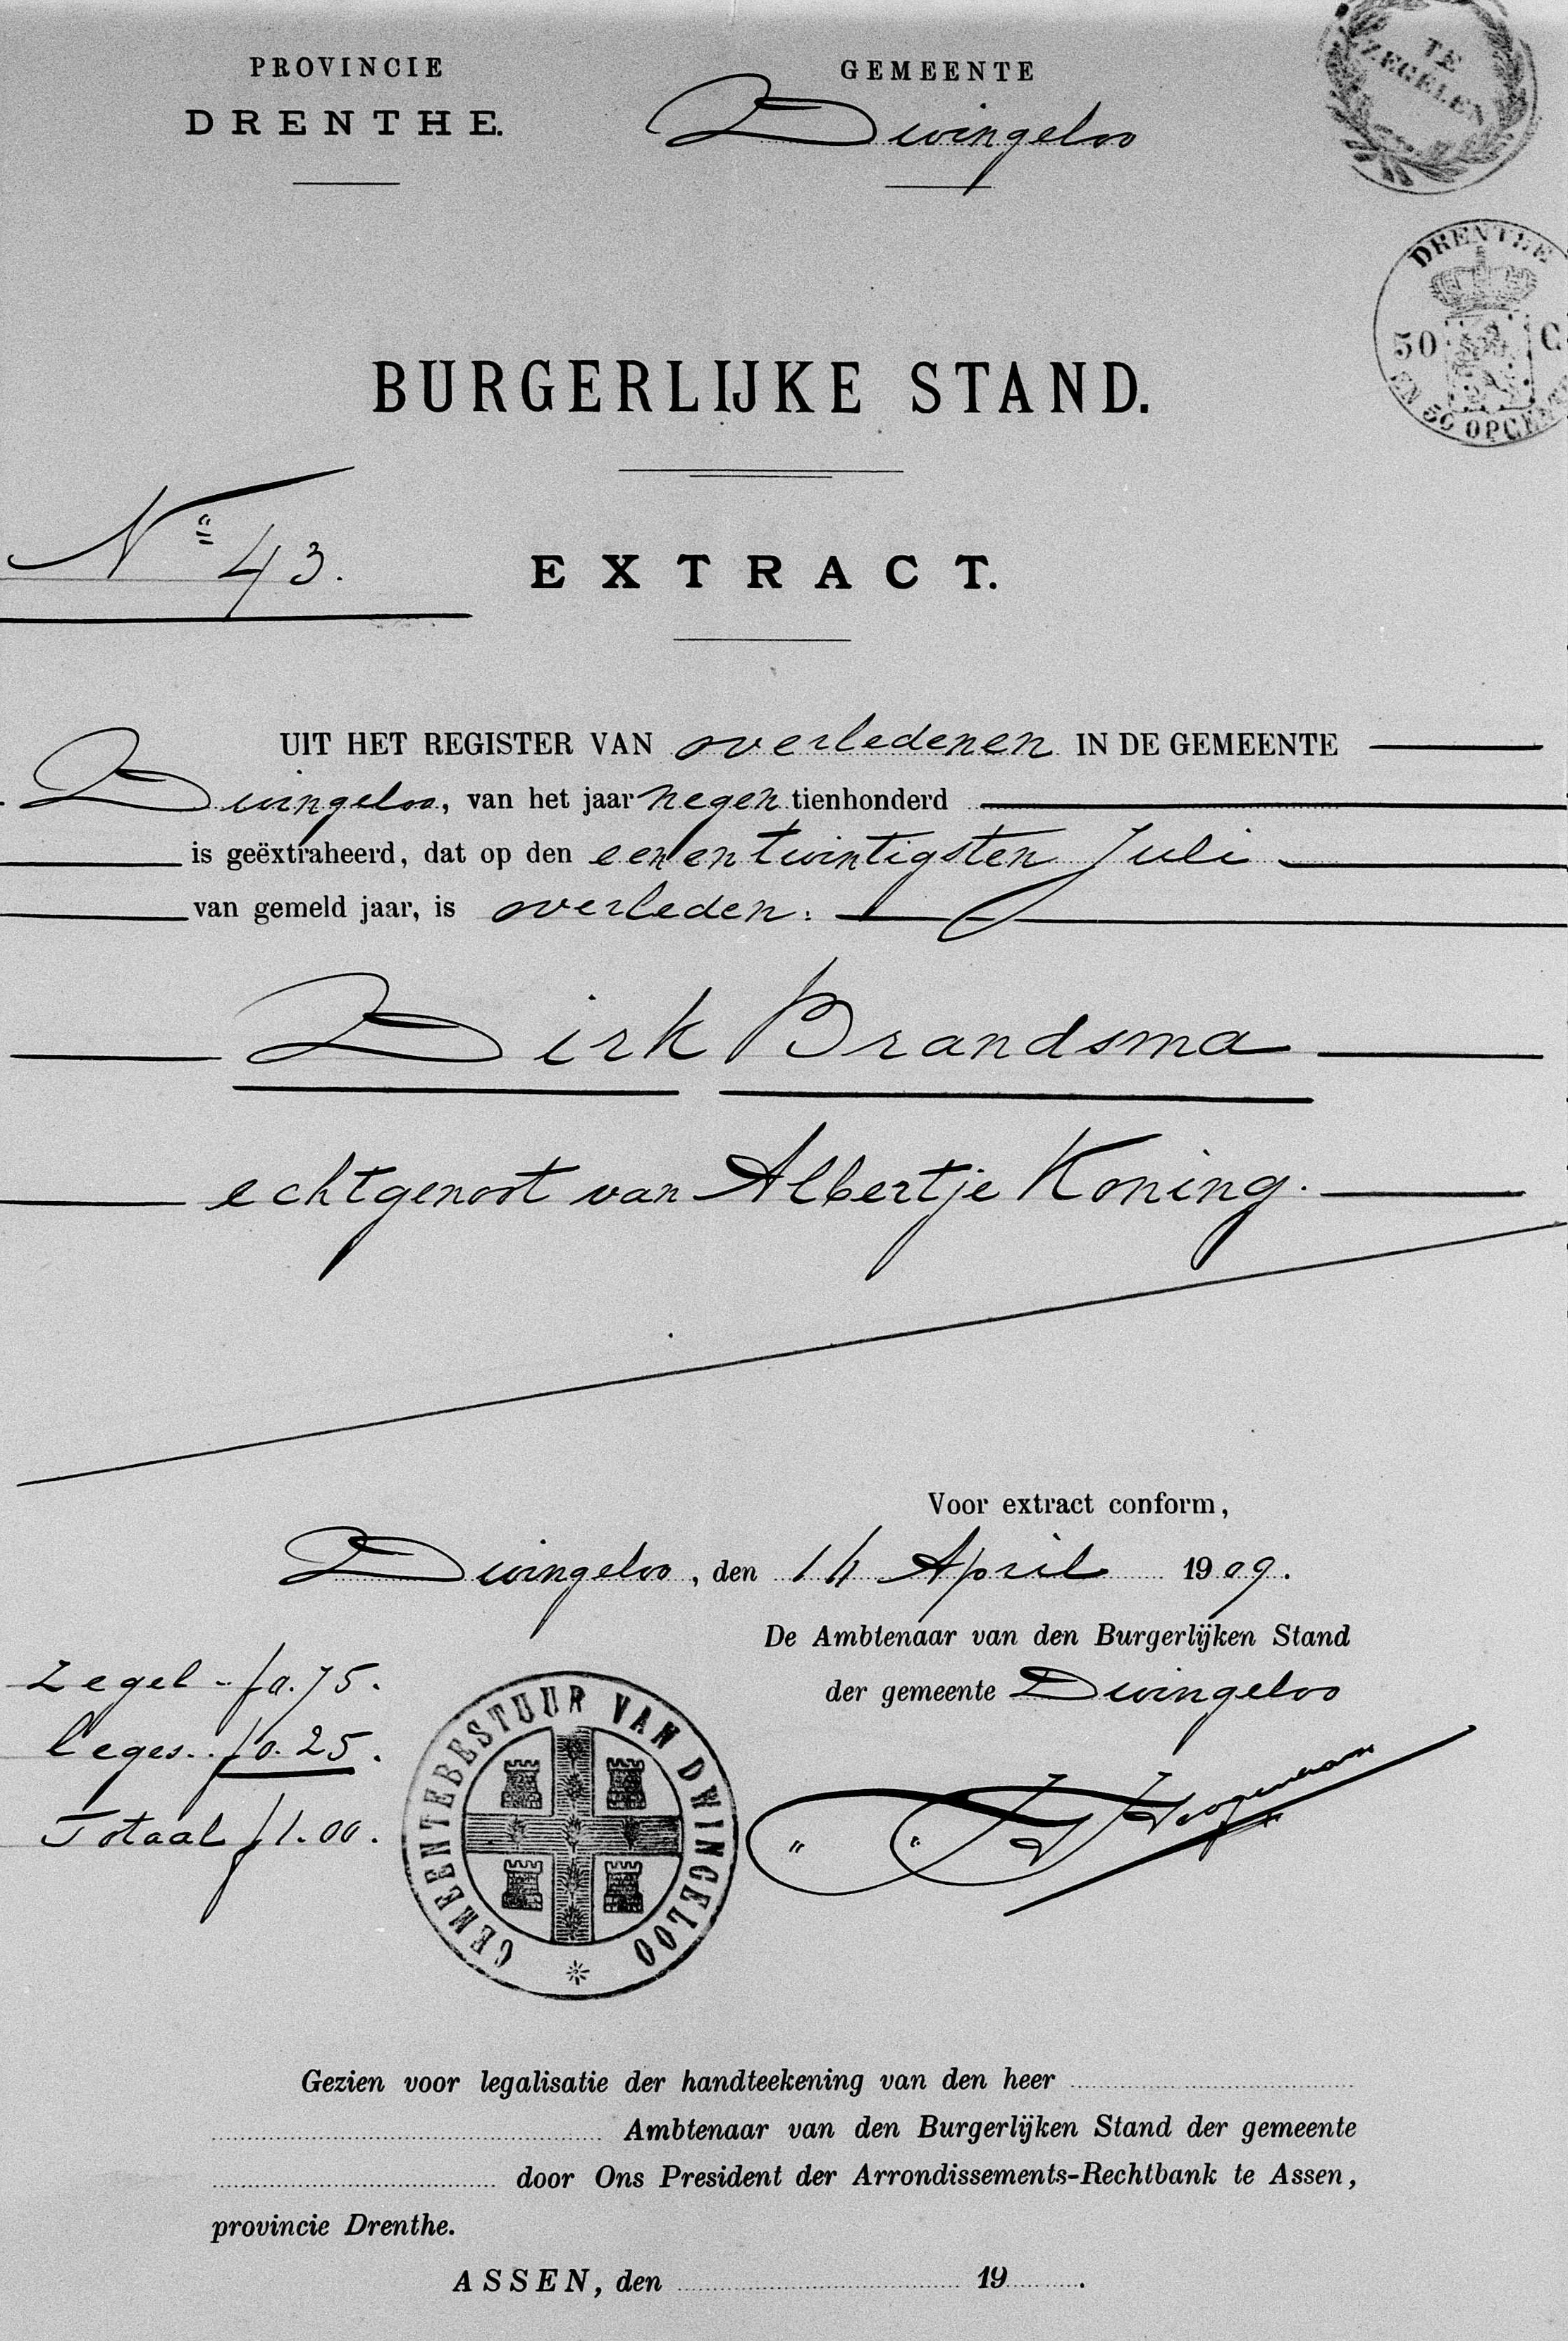 PROVINCIE
DRENTHE.
GEMEENTE
Dwingeloo
TE
ZEGELEN
DRENTHE
50 C
EN 50 OPCEN
BURGERLIJKE STAND.
No 43.
EXTRACT.
UIT HET REGISTER VAN overledenen IN DE GEMEENTE
Dwingeloo, van het jaar negentienhonderd
is geëxtraheerd, dat op den eenentwintigsten Juli
van gemeld jaar, is overleden:
Dirk Brandsma
echtgenoot van Albertje Koning.
Voor extract conform,
Dwingeloo, den 14 April 1909.
De Ambtenaar van den Burgerlijken Stand
der gemeente Dwingeloo
Zegel - f 0.75.
Leges.. f 0.25.
Totaal f 1.00.
GEMEENTEBESTUUR VAN DWINGELOO
Gezien voor legalisatie der handteekening van den heer
Ambtenaar van den Burgerlijken Stand der gemeente
door Ons President der Arrondissements-Rechtbank te Assen,
provincie Drenthe.
ASSEN, den 19 .